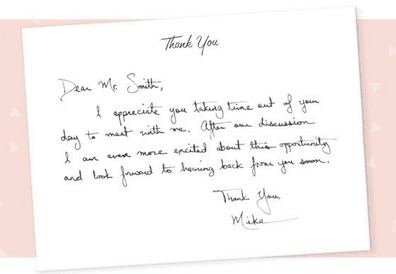 Thank You
Dear Mr. Smith,
I appreciate you taking time out of your
day to meet with me. After our discussion
I am even more excited about this opportunity
and look forward to hearing back from you soon.
Thank You,
Mike